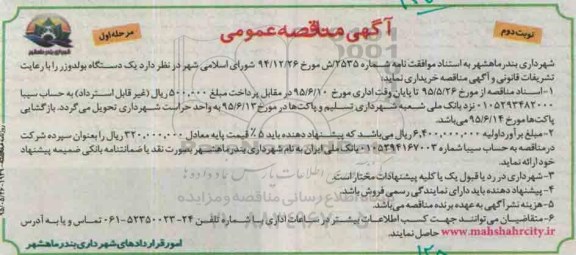 آگهی مناقصه عمومی
نوبت دوم
مرحله اول
شهرداری بندرماهشهر به استناد موافقت نامه شماره ۲۵۳۵/ش مورخ ۹۴/۱۲/۲۶ شورای اسلامی شهر در نظر دارد یک دستگاه بولدوزر را با رعایت
تشریفات قانونی و آگهی مناقصه خریداری نماید:
۱-اسناد مناقصه از مورخ ۹۵/۵/۲۶ تا پایان وقت اداری مورخ ۹۵/۶/۱۰ در مقابل پرداخت مبلغ ۵۰۰,۰۰۰ ریال (غیر قابل استرداد) به حساب سیبا
۰۱۰۵۲۹۳۴۸۲۰۰۰ نزد بانک ملی شعبه شهرداری تسلیم و پاکت‌ها در مورخ ۹۵/۶/۱۳ به واحد حراست شهرداری تحویل می‌گردد. بازگشایی
پاکت‌ها مورخ ۹۵/۶/۱۴ می‌باشد.
۲-مبلغ برآورد اولیه ۶,۴۰۰,۰۰۰,۰۰۰ ریال می‌باشد که پیشنهاد دهنده باید ۵٪ قیمت پایه معادل ۳۲۰,۰۰۰,۰۰۰ ریال را بعنوان سپرده شرکت
در مناقصه به حساب سیبا شماره ۰۱۰۵۳۹۴۱۶۷۰۰۳ بانک ملی ایران به نام شهرداری بندرماهشهر بصورت نقد یا ضمانتنامه بانکی ضمیمه پیشنهاد
خود ارائه نماید.
۳-شهرداری در رد یا قبول یک یا کلیه پیشنهادات مختار است.
۴-پیشنهاد دهنده باید دارای نمایندگی رسمی فروش باشد.
۵-هزینه نشر آگهی به عهده برنده مناقصه می‌باشد.
۶-متقاضیان می‌توانند جهت کسب اطلاعات بیشتر در ساعات اداری با شماره تلفن ۲۴-۵۲۳۵۰۰۲۳-۰۶۱ تماس و یا به آدرس
www.mahshahrcity.ir حاصل نمایند.
امور قراردادهای شهرداری بندرماهشهر